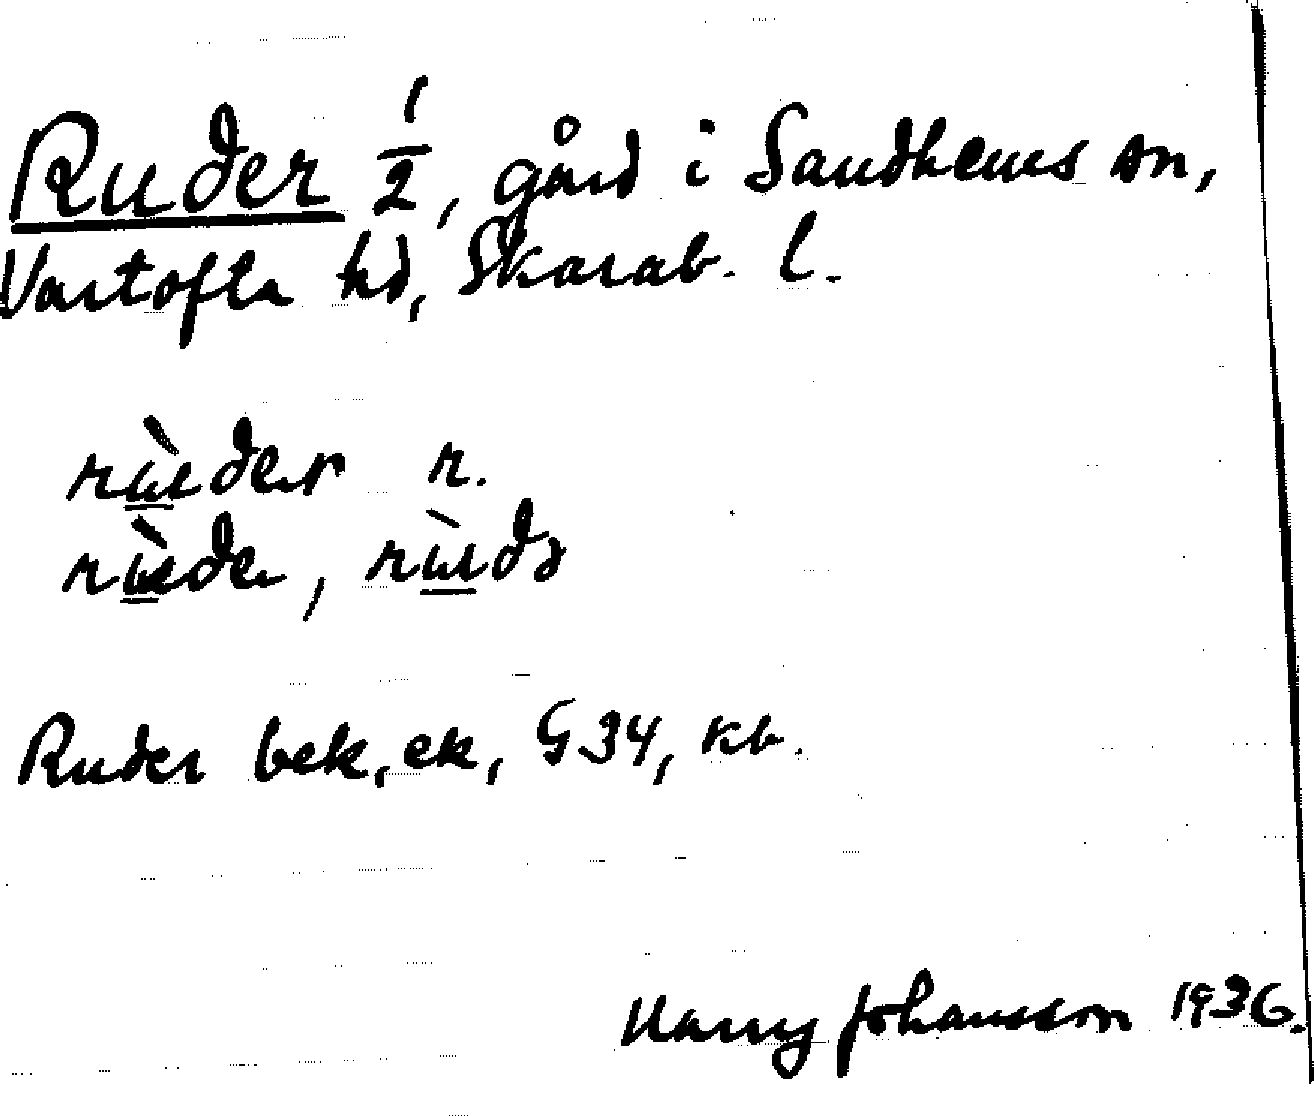 Ruder 1/2, gård i Sandhems sn,
Vartofta hd, Skarab. l.
r.
Ruder bek, ek, G34, kb.
Harry Johansson 1936.